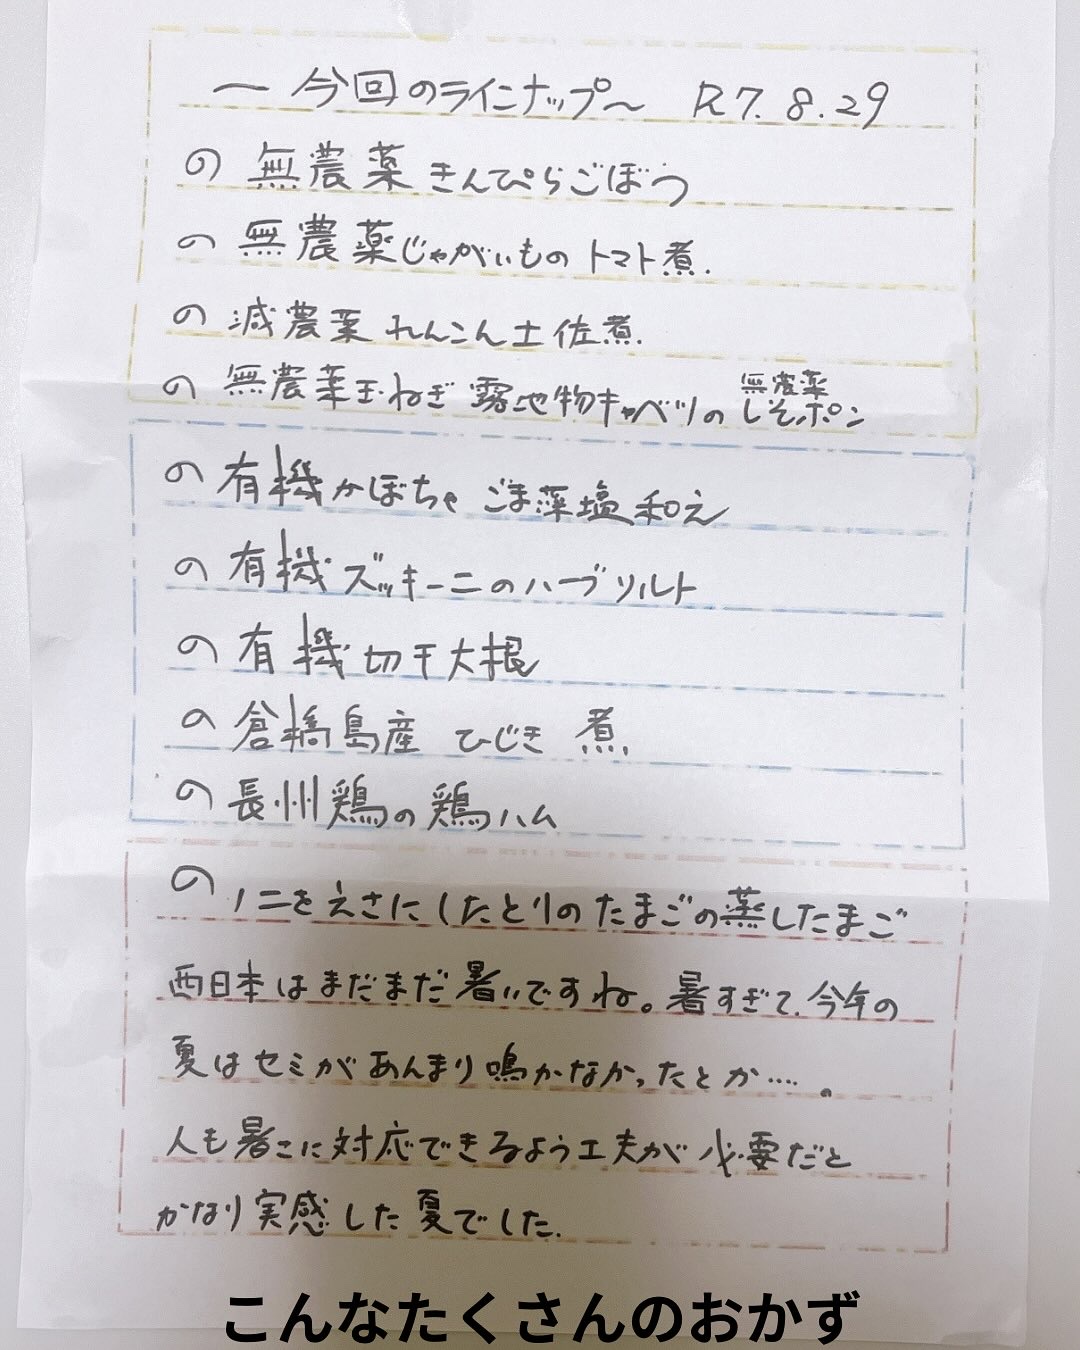 〜今回のラインナップ〜 R7.8.29
の 無農薬きんぴらごぼう
の 無農薬じゃがいものトマト煮.
の 減農薬れんこん土佐煮.
の 無農薬玉ねぎ 露地物キャベツの無農薬しそポン
の 有機かぼちゃ ごま藻塩和え
の 有機ズッキーニのハーブソルト
の 有機切干大根
の 倉橋島産 ひじき 煮.
の 長州鶏の鶏ハム
の ノニをえさにしたとりのたまごの蒸したまご
西日本はまだまだ暑いですね。暑すぎて、今年の
夏はセミがあんまり鳴かなかったとか....。
人も暑こに対応できるよう工夫が必要だと
かなり実感した夏でした.
こんなたくさんのおかず